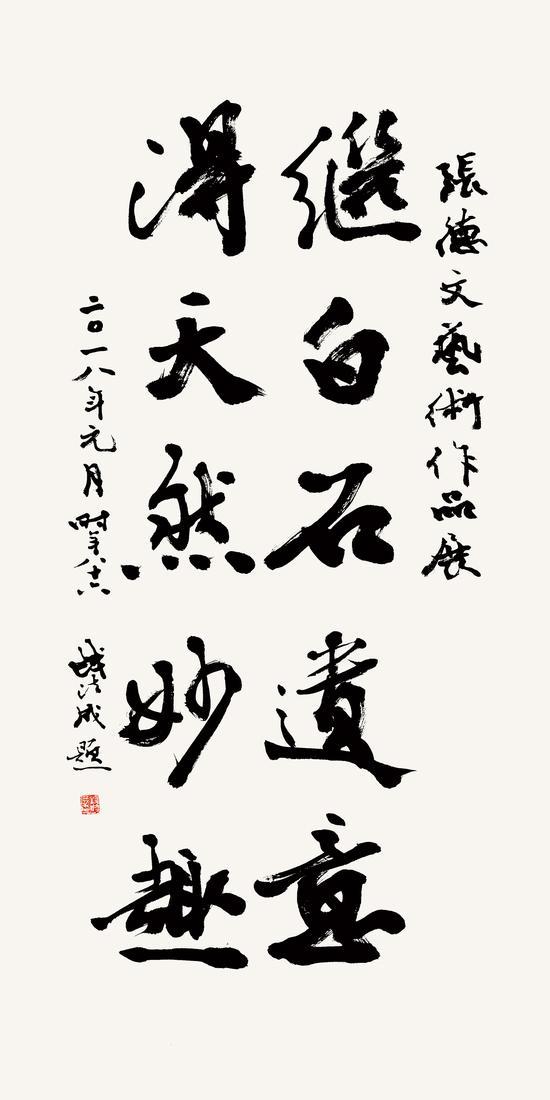 張德文藝術作品展
繼白石遺意
得天然妙趣
二〇一八年元月時年八十六
成題